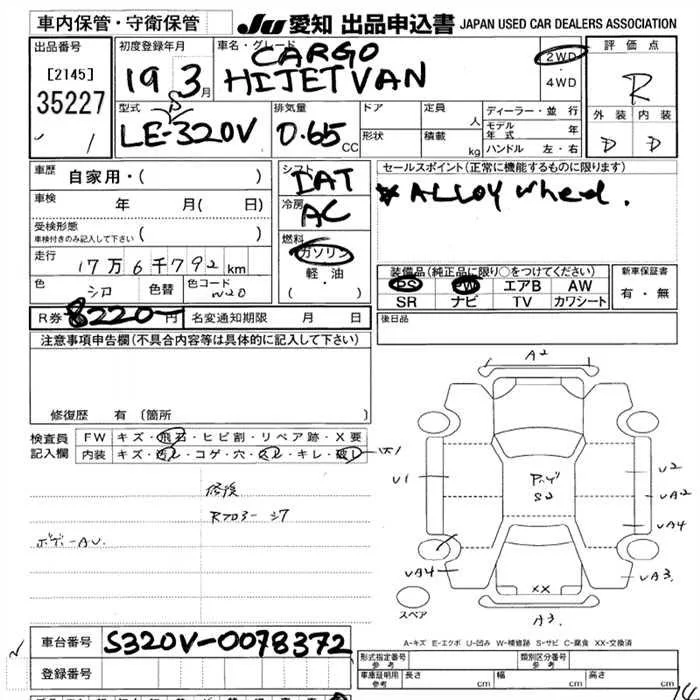 車内保管・守衛保管 JU 愛知 出品申込書 JAPAN USED CAR DEALERS ASSOCIATION
出品番号 初度登録年月 車名・グレード 評価点
[2145] 19 3月 CARGO 2WD・4WD R
35227 HIJET VAN
/ 1 型式 S 排気量 ドア 定員 人 ディーラー・並行 外装 内装
LE-320V 0.65 CC 形状 積載 kg モデル年式 年 D D
ハンドル 左・右
車歴 自家用・( ) シフト セールスポイント(正常に機能するものに限ります)
車検 年 月( 日) IAT ALLOY wheel.
受検形態 車検付きのみ記入して下さい ( ) 冷房 AC
走行 17万6千792km 燃料 ガソリン 装備品(純正品に限り○をつけてください) 新車保証書
色 シロ 色替 色コード W20 軽・油 PS PW エアB AW 有・無
(・) SR ナビ TV カワシート
R券 8220- 円 名変通知期限 月 日 後日品
注意事項申告欄(不具合内容等は具体的に記入して下さい)
修復歴 有 (箇所
検査員記入欄 FW キズ・飛石・ヒビ割・リペア跡・X要
内装 キズ・汚レ・コゲ・穴・スレ・キレ・破レ
修復
ボデーAU
A2
U1
U2
UA2
UA4
S2
UA4
UA3
XX
スペア
A3
A-キズ E-エクボ U-凹み W-補修跡 S-サビ C-腐食 XX-交換済
車台番号 S320V-0078372 形式指定番号 参考 類別区分番号 参考
登録番号 車庫証明用 参考 長さ cm 幅 cm 高さ cm